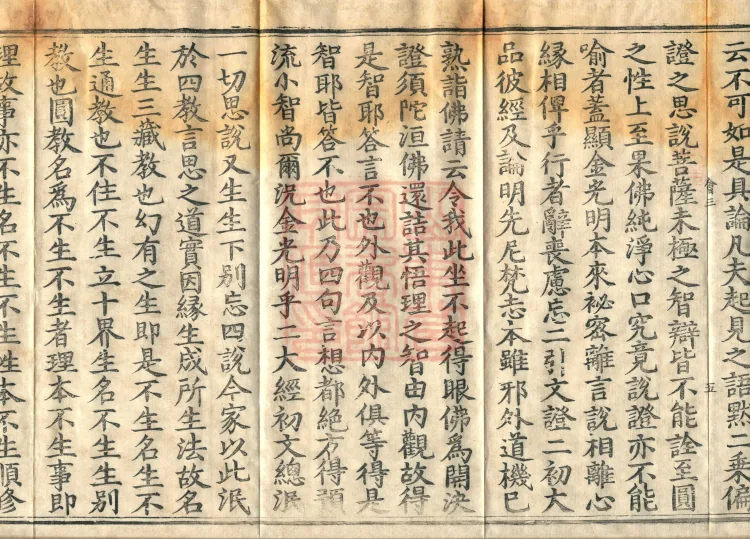 云不可如是具論凡夫起見之語默二乘偏
證之思說菩薩未極之智辯皆不能詮至圓
會三
五
之性上至果佛純淨心口究竟說證亦不能
喻者蓋顯金光明本來祕密離言說相離心
縁相俾乎行者辭喪慮忘二引文證二初大
品彼經及論明先尼梵志本雖邪外道機已
熟詣佛請云令我此坐不起得眼佛爲開決
證須陀洹佛還詰其悟理之智由内觀故得
是智耶答言不也外觀及以内外俱等得是
智耶皆答不也此乃四句言想都絶方得預
流小智尚爾況金光明乎二大經初文總泯
一切思說又生生下别忘四說今家以此泯
於四教言思之道實因縁生成所生法故名
生生三藏教也幻有之生即是不生名生不
生通教也不住不生立十界生名不生生别
教也圓教名爲不生不生者理本不生事即
理故事亦不生名不生不生性本不生順修